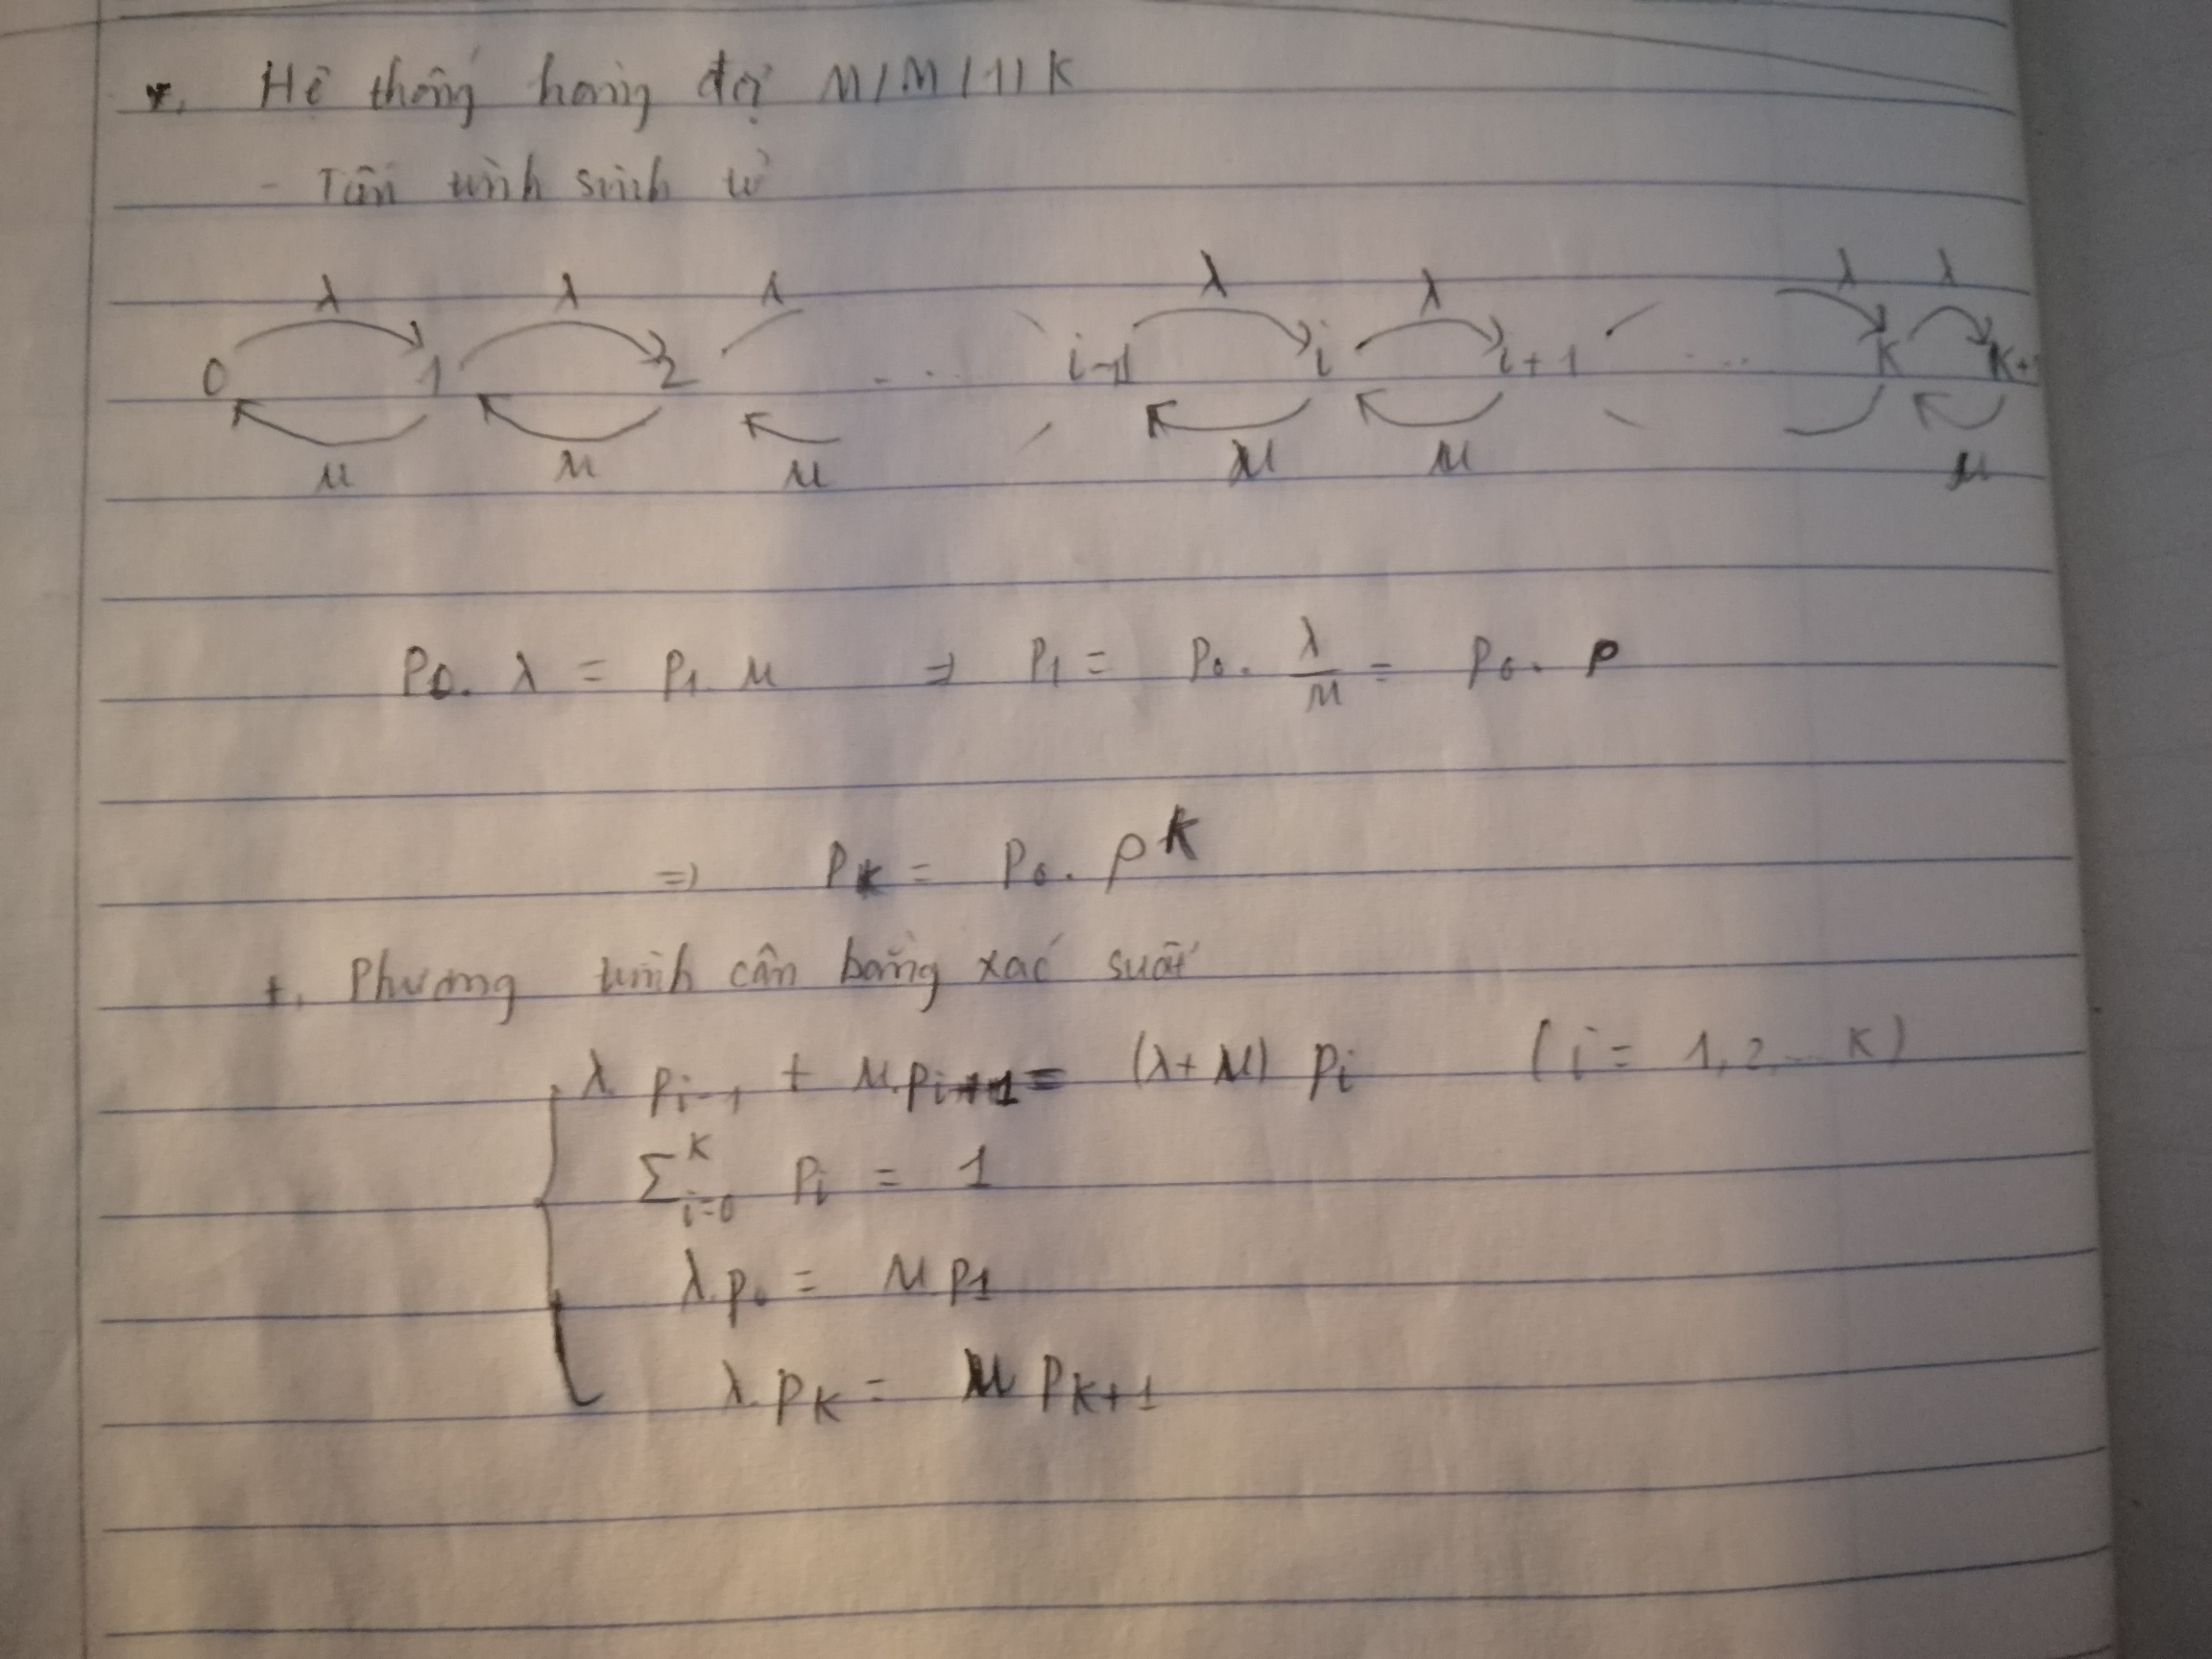 *, Hệ thống hàng đợi M/M/1/K
- Tiến trình sinh tử
λ λ λ λ λ λ λ
0 1 2 ... i-1 i i+1 ... K K+1
μ μ μ μ μ μ
P₀. λ = P₁. μ ⇒ P₁ = P₀. λ/μ = P₀. ρ
⇒ P_K = P₀. ρ^K
+, Phương trình cân bằng xác suất
λ. p_{i-1} + μ. p_{i+1} = (λ+μ) p_i (i = 1, 2, ... K)
Σ_{i=0}^{K} p_i = 1
λ. p₀ = μ p₁
λ. p_K = μ p_{K+1}